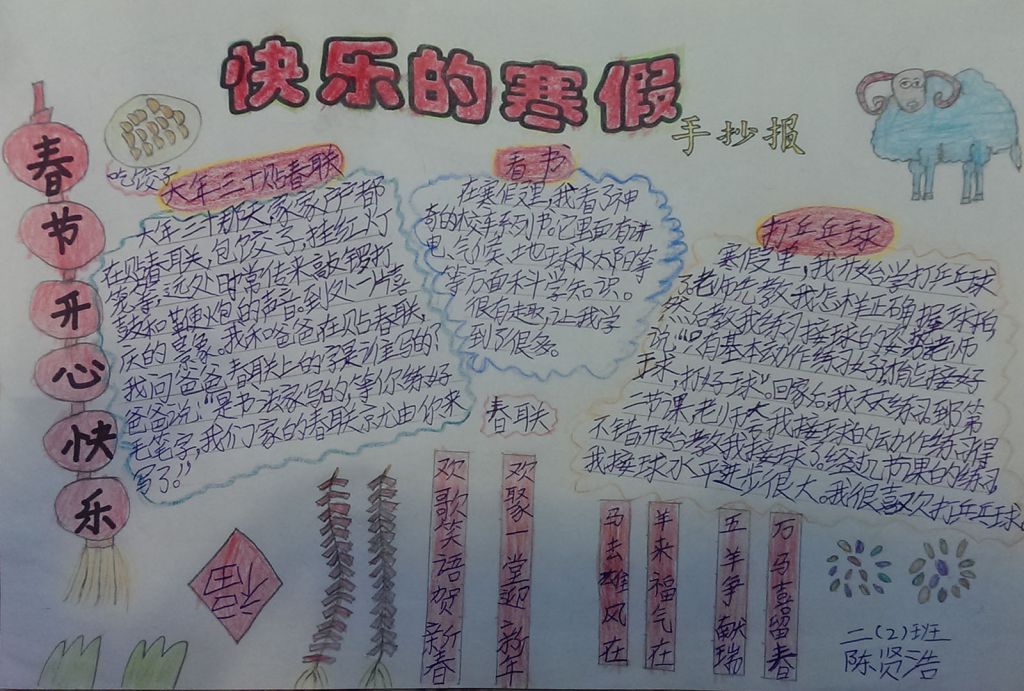 快乐的寒假
手抄报
春节开心快乐
吃饺子
大年三十贴春联
大年三十那天家家户户都
在贴春联,包饺子,挂红灯
笼等,远处时常传来敲锣打
鼓和鞭炮的声音。到处一片喜
庆的景象。我和爸爸在贴春联,
我问爸爸,春联上的字是谁写的?
爸爸说:“是书法家写的,等你练好
毛笔字,我们家的春联就由你来
写了!”
看书
在寒假里,我看了神
奇的校车系列书。它里面有讲
电、气候、地球、太阳等
等方面科学知识。
很有趣,让我学
到了很多。
打乒乓球
寒假里,我开始学打乒乓球
了,老师先教我怎样正确握球拍
然后教我练习接球的姿势,老师
说:“只有基本动作练习好,才能接好
球,打好球”。回家后,我天天练习,到了第
二节课,老师夸我接球的动作练习得
不错,开始教我接球了。经过几节课的练习
我接球水平进步很大。我很喜欢打乒乓球。
春联
福
欢歌笑语贺新春
欢聚一堂迎新年
马去雄风在
羊来福气在
五羊争献瑞
万马喜留春
二(2)班
陈贤浩